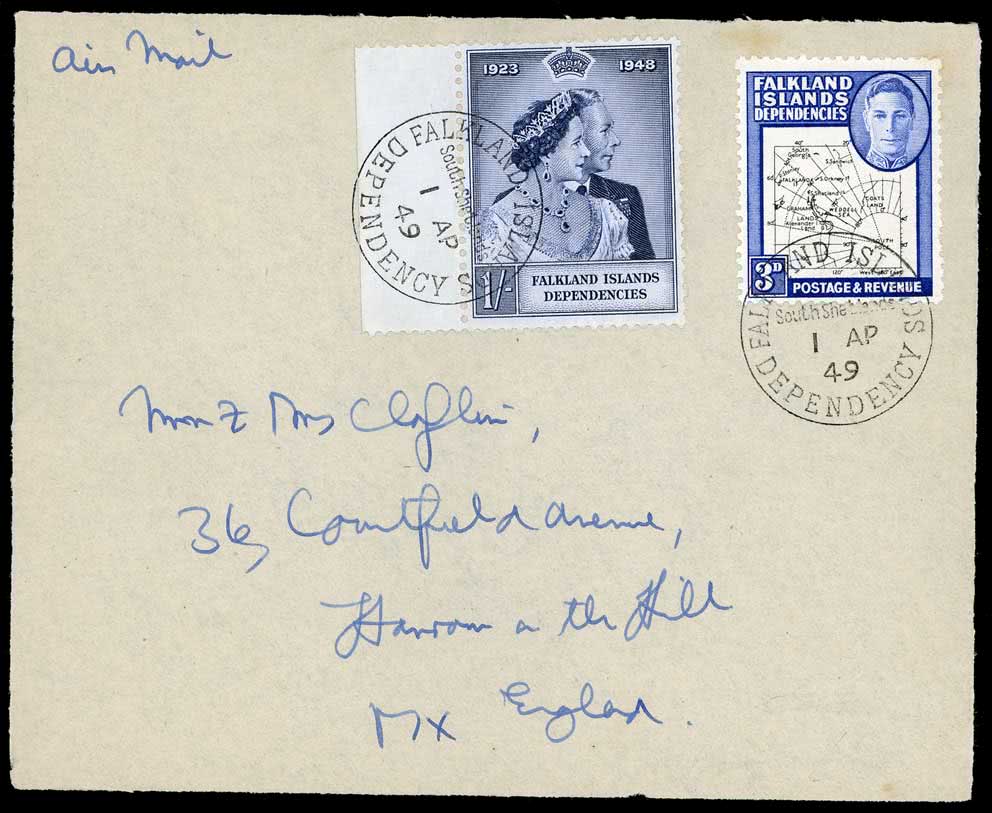 Air Mail
1923 1948
1/-
FALKLAND ISLANDS
DEPENDENCIES
FALKLAND ISLA
DEPENDENCY S
South Shetlands
1 AP
49
FALKLAND
ISLANDS
DEPENDENCIES
South
Georgia
S. Sandwich
S. Orkney Is
S. Shetland Is
GRAHAM
LAND
WEDDELL
SEA
COATS
LAND
SOUTH
POLE
3D
POSTAGE & REVENUE
FALKLAND ISL
South Shetlands
1 AP
49
DEPENDENCY SO
Mr & Mrs Claflin,
36, Courtfield Avenue,
Harrow on the Hill
Mx England.